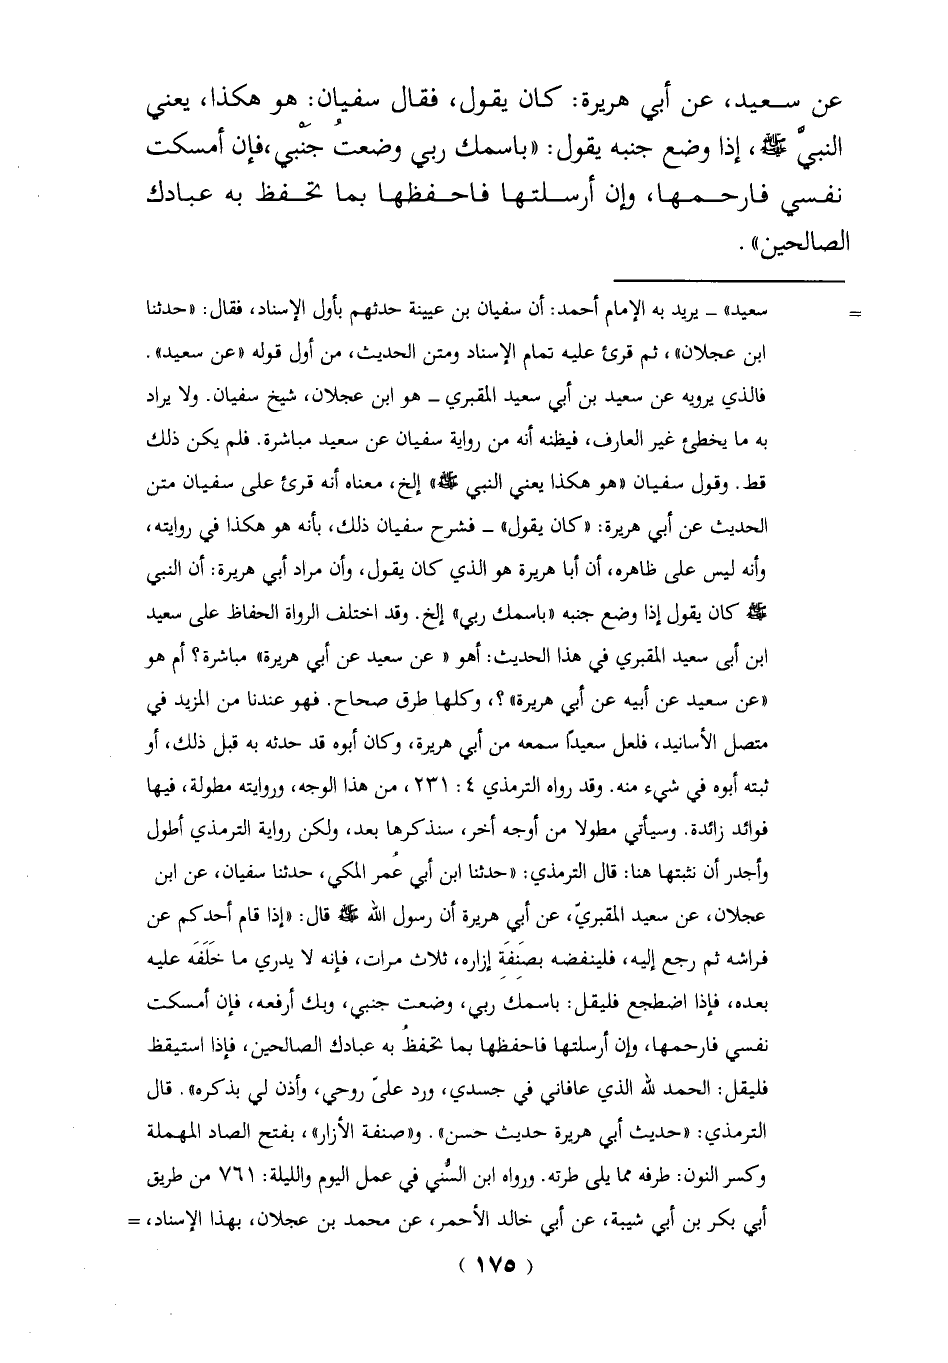 عن سـعيد، عن أبي هريرة: كان يقول، فقال سفيان: هو هكذا، يعني
النبيّ ﷺ، إذا وضع جنبه يقول: «باسمك ربي وضعتُ جنْبي،فإن أمسكت
نفسي فارحمها، وإن أرسلتها فاحفظها بما تحفظ به عبادك
الصالحين» .
= سعيد» ــ يريد به الإمام أحمد: أن سفيان بن عيينة حدثهم بأول الإسناد، فقال: «حدثنا
ابن عجلان» ، ثم قرئ عليه تمام الإسناد ومتن الحديث، من أول قوله «عن سعيد» .
فالذي يرويه عن سعيد بن أبي سعيد المقبري ــ هو ابن عجلان، شيخ سفيان. ولا يراد
به ما يخطئ غير العارف، فيظنه أنه من رواية سفيان عن سعيد مباشرة. فلم يكن ذلك
قط. وقول سفيان «هو هكذا يعني النبي ﷺ» إلخ، معناه أنه قرئ على سفيان متن
الحديث عن أبي هريرة: «كان يقول» ــ فشرح سفيان ذلك، بأنه هو هكذا في روايته،
وأنه ليس على ظاهره، أن أبا هريرة هو الذي كان يقول، وأن مراد أبي هريرة: أن النبي
ﷺ كان يقول إذا وضع جنبه «باسمك ربي» إلخ. وقد اختلف الرواة الحفاظ على سعيد
ابن أبى سعيد المقبري في هذا الحديث: أهو « عن سعيد عن أبي هريرة» مباشرة؟ أم هو
«عن سعيد عن أبيه عن أبي هريرة»؟، وكلها طرق صحاح. فهو عندنا من المزيد في
متصل الأسانيد، فلعل سعيداً سمعه من أبي هريرة، وكان أبوه قد حدثه به قبل ذلك، أو
ثبته أبوه في شيء منه. وقد رواه الترمذي ٤ : ٢٣١ ، من هذا الوجه، وروايته مطولة، فيها
فوائد زائدة. وسيأتي مطولا من أوجه أخر، سنذكرها بعد، ولكن رواية الترمذي أطول
وأجدر أن نثبتها هنا: قال الترمذي: «حدثنا ابن أبي عُمر المكي، حدثنا سفيان، عن ابن
عجلان، عن سعيد المقبريّ، عن أبي هريرة أن رسول الله ﷺ قال: «إذا قام أحدكم عن
فراشه ثم رجع إليه، فلينفضه بصَنِفَة إزاره، ثلاث مرات، فإنه لا يدري ما خَلَفَه عليه
بعده، فإذا اضطجع فليقل: باسمك ربي، وضعت جنبي، وبك أرفعه، فإن أمسكت
نفسي فارحمها، وإن أرسلتها فاحفظها بما تحفظُ به عبادك الصالحين، فإذا استيقظ
فليقل: الحمد لله الذي عافاني في جسدي، ورد عليّ روحي، وأذن لي بذكره» . قال
الترمذي: «حديث أبي هريرة حديث حسن» . و«صنفة الأزار» ، بفتح الصاد المهملة
وكسر النون: طرفه مما يلى طرته. ورواه ابن السُّني في عمل اليوم والليلة: ٧٦١ من طريق
أبي بكر بن أبي شيبة، عن أبي خالد الأحمر، عن محمد بن عجلان، بهذا الإسناد، =
( ١٧٥ )